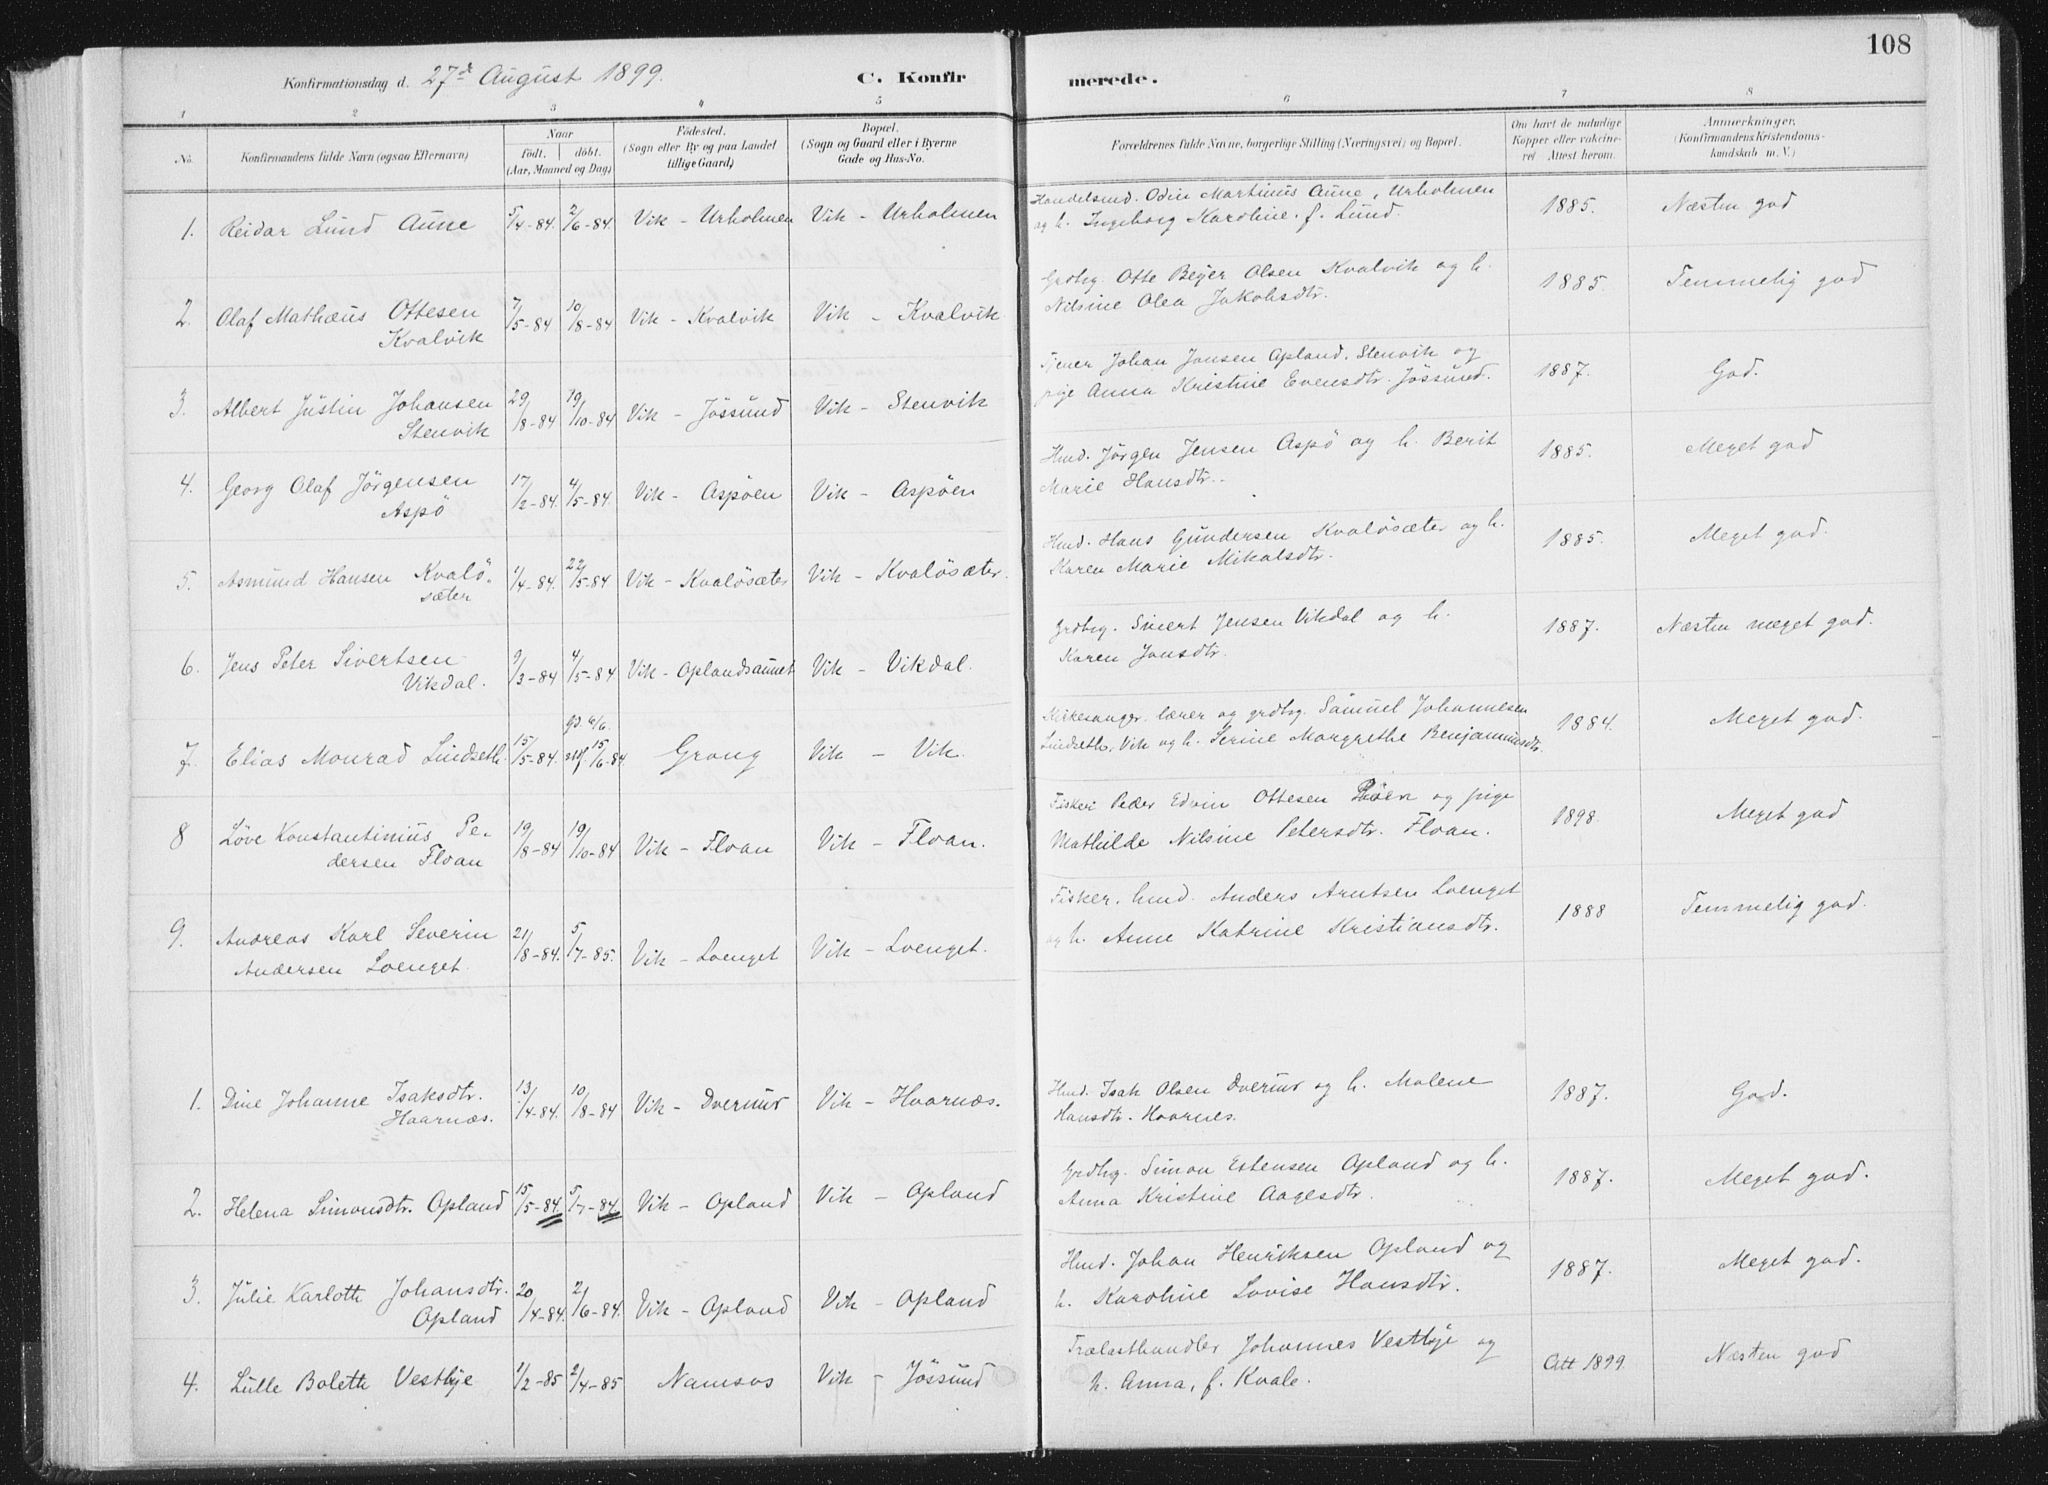 108
Konfirmationsdag d. 27de August 1899.
C. Konfirmerede.
1 2 3 4 5 6 7 8
No.
Konfirmandens fulde Navn (ogsaa Efternavn)
Naar
födt. döbt.
(Aar, Maaned og Dag)
Födested.
(Sogn eller By og paa Landet
tillige Gaard)
Bopæl.
(Sogn og Gaard eller i Byerne
Gade og Hus-No.
Forældrenes fulde Navne, borgerlige Stilling (Næringsvei) og Bopæl.
Om havt de naturlige
Kopper eller vakcine-
ret Attest herom.
Anmærkninger.
(Konfirmandens Kristendoms-
kundskab m. V.)
1. Reidar Lund Aune 5/4-84. 2/6-84. Vik - Urholmen Vik - Urholmen
Handelsmd. Odin Martinus Aune, Urholmen
og h. Ingeborg Karoline f. Lund. 1885. Næsten god
2. Olaf Mathæus Ottesen
Kvalvik 7/5-84 10/8-84 Vik - Kvalvik Vik - Kvalvik
Grdbrg. Otte Beyer Olsen Kvalvik og h.
Nilsine Olea Jakobsdtr. 1885. Temmelig god
3. Albert Justin Johansen
Stenvik 29/8-84 19/10-84 Vik - Jössund Vik - Stenvik
Tjener Johan Jonsen Opland, Stenvik og
pige Anna Kristine Evensdtr. Jössund. 1887. God.
4. Georg Olaf Jörgensen
Aspö 17/2-84. 4/5-84. Vik - Aspöen Vik - Aspöen
Hmd. Jörgen Jensen Aspö og h. Berit
Marie Hansdtr. 1885. Meget god
5. Asmund Hansen Kvalö-
sæter 1/4-84. 22/5-84 Vik - Kvalösæter Vik - Kvalösæter.
Hmd. Hans Gundersen Kvalösæter og h.
Karen Marie Mikalsdtr. 1885. Meget god.
6. Jens Peter Sivertsen
Vikdal. 9/3-84 4/5-84 Vik - Oplandsaunet Vik - Vikdal.
Grdbrg. Sivert Jensen Vikdal og h.
Karen Jonsdtr. 1887. Næsten meget god.
7. Elias Monrad Lindseth. 15/5-84. gd. 6/6 stf. 15/6-84. Grong Vik - Vik.
Kirkesanger, lærer og grdbrg. Samuel Johannesen
Lindseth, Vik og h. Serine Margrethe Benjaminsdtr. 1884. Meget god.
8 Löve Konstantinius Pe-
dersen Floan 19/8-84 19/10-84 Vik - Floan Vik - Floan.
Fisker Peder Edvin Ottesen Röen og pige
Mathilde Nilsine Petersdtr. Floan. 1898. Meget god
9. Andreas Karl Severin
Andersen Loenget. 21/8-84. 5/7-85. Vik - Loenget Vik - Loenget.
Fisker, hmd. Anders Arntsen Loenget
og h. Anne Katrine Kristiansdtr. 1888 Temmelig god.
1. Dine Johanne Isaksdtr.
Haarnæs. 13/4-84. 10/8-84 Vik - Dverner Vik - Haarnæs.
Hmd. Isak Olsen Dverner og h. Malene
Hansdtr. Haarnes. 1887. God.
2. Helena Simonsdtr. Opland 15/5-84. 5/7-84. Vik - Opland Vik - Opland
Grdbrg. Simon Estensen Opland og h.
Anna Kristine Aagesdtr. 1887. Meget god.
3. Julie Karloth Johansdtr.
Opland 20/4-84. 2/6-84. Vik - Opland Vik - Opland
Hmd. Johan Henriksen Opland og
h. Karoline Lovise Hansdtr. 1887. Meget god.
4. Lulle Boleth Vestbye 1/2-85 2/4-85 Namsos Vik - Jössund
Trælasthandler Johannes Vestbye og
h. Anna, f. Kvale. Att 1899. Næsten god